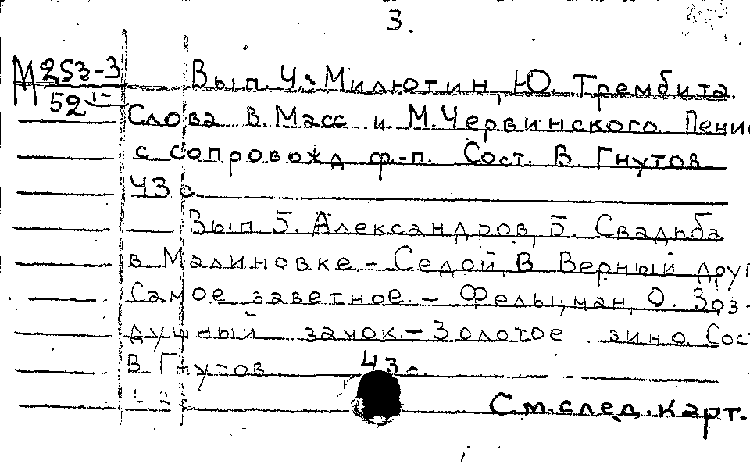 3.
М 253-3
52
Вып. 4: Милютин, Ю. Трембита.
Слова В. Масс и М. Червинского. Пение
с сопровожд. ф-п. Сост. В. Гнутов
43 с.
Вып. 5. Александров, Б. Свадьба
в Малиновке. - Седой, В. Верный друг
Самое заветное. - Фельцман, О. Воз-
душный замок - Золотое вино. Сост.
В. Гнутов 43 с.
См. след. карт.